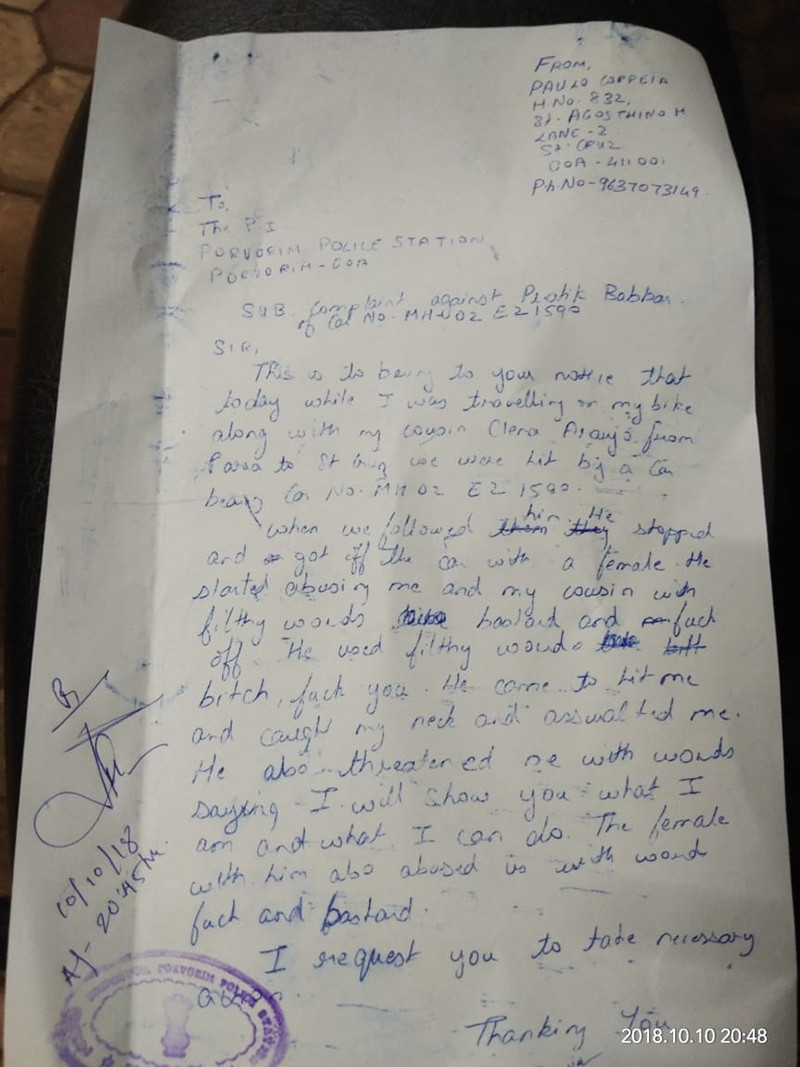 FROM,
PAULO CORREIA
H.NO. 832,
St. AGOSTHINO H
LANE - 2
St. CRUZ
GOA - 411001
Ph.No - 9637073149
To,
The P.I
PORVORIM POLICE STATION,
PORVORIM - GOA
SUB. Complaint against Pratik Babbar.
of Car No. MH 02 EZ 1590
SIR,
This is to being to your notice that
today while I was travelling on my bike
along with my cousin Clena Araujo from
Parra to St Cruz we were hit by a Car
being Car No. MH 02 EZ 1590.
When we followed him He stopped
and got off the car with a female. He
started abusing me and my cousin with
filthy words bastard and fuck
off. He used filthy words
bitch, fuck you. He came to hit me
and caught my neck and assualted me.
He also threatened me with words
saying I will show you what I
am and what I can do. The female
with him also abused us with words
fuck and bastard.
I request you to take necessary
action.
Thanking You
10/10/18
At - 20:45 hr.
PORVORIM POLICE STATION
2018.10.10 20:48